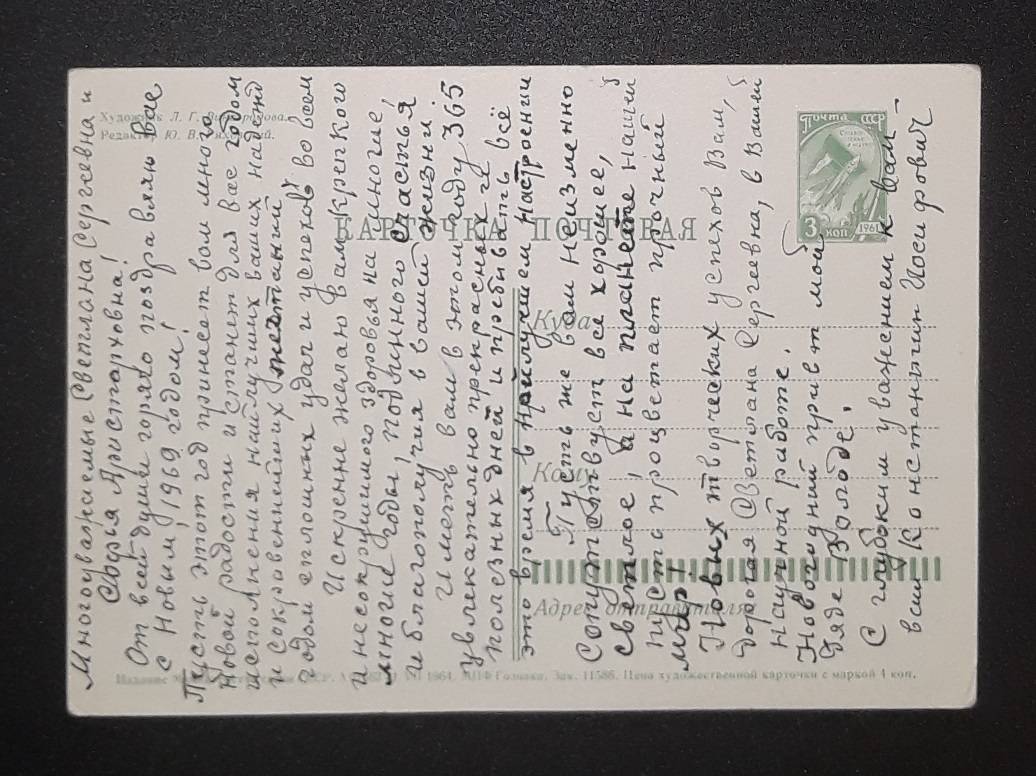 Многоуважаемые Светлана Сергеевна и
Аристарховна!
От всей души горячо поздравляю вас
с Новым 1969 годом!
Пусть этот год принесет вам много
новой радости и станет для вас годом
исполнения наилучших ваших надежд
и сокровеннейших мечтаний
годом сплошных удач и успехов во всем
Искренне желаю вам крепкого
и несокрушимого здоровья на многие,
многие годы, подлинного счастья
и благополучия в вашей жизни.
Иметь вам в этом году 365
увлекательно прекрасных и
полезных дней и пребывать всё
это время в наилучшем настроении
Пусть же вам неизменно
сопутствует все хорошее,
светлое, а на планете нашей
пусть процветает прочный
мир!
Новых творческих успехов Вам,
дорогая Светлана Сергеевна, в Вашей
научной работе.
Новогодний привет мой
дяде Володе.
С глубоким уважением к вам –
ваш Константин Иосифович
Художник Л. Г.
Редактор Ю. В.
КАРТОЧКА ПОЧТОВАЯ
Почта СССР
3 коп. 1961
Куда
Кому
Адрес отправителя:
Издание
1964. МПФ Гознака. Зак. 11586. Цена художественной карточки с маркой 4 коп.